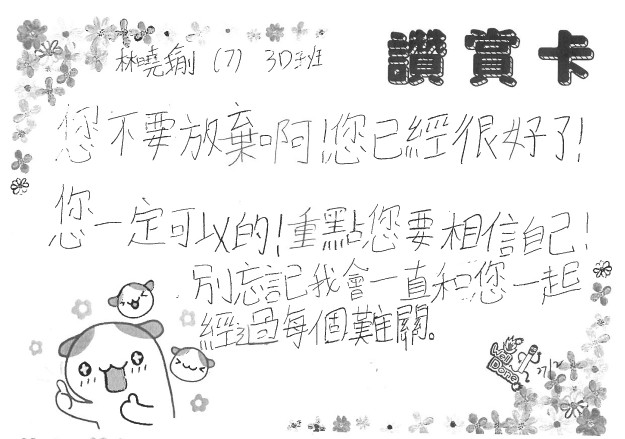 讚賞卡
林曉瑜 (7) 3D班
您不要放棄啊!您已經很好了!
您一定可以的!重點您要相信自己!
別忘記我會一直和您一起
經過每個難關。
Well
Done
27/2